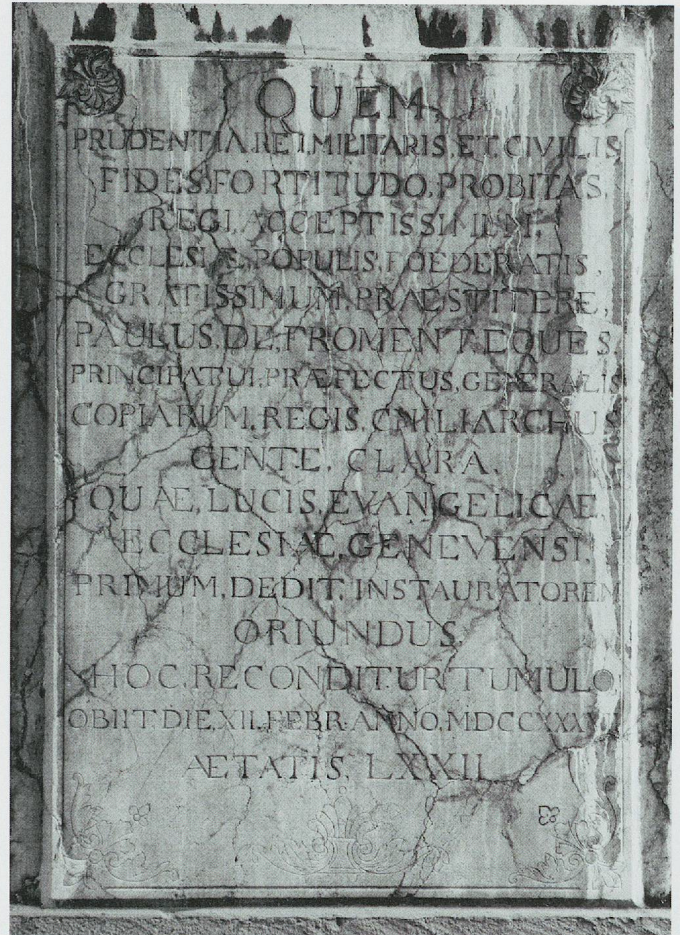 QUEM,
PRUDENTIA.REI.MILITARIS.ET.CIVILIS
FIDES.FORTITUDO.PROBITAS,
REGI.ACCEPTISSIMUM.
ECCLESIÆ.POPULIS.FOEDERATIS,
GRATISSIMUM.PRÆSTITERE,
PAULUS.DE.FROMENT.EQUES.
PRINCIPATUI.PRÆFECTUS.GENERALIS
COPIARUM.REGIS.CHILIARCHUS
GENTE.CLARA.
QUÆ.LUCIS.EVANGELICÆ
ECCLESIÆ.GENEVENSI.
PRIMUM.DEDIT.INSTAURATOREM
ORIUNDUS.
HOC.RECONDITUR TUMULO
OBIIT DIE.XII.FEBR.ANNO.
ÆTATIS. LXXII